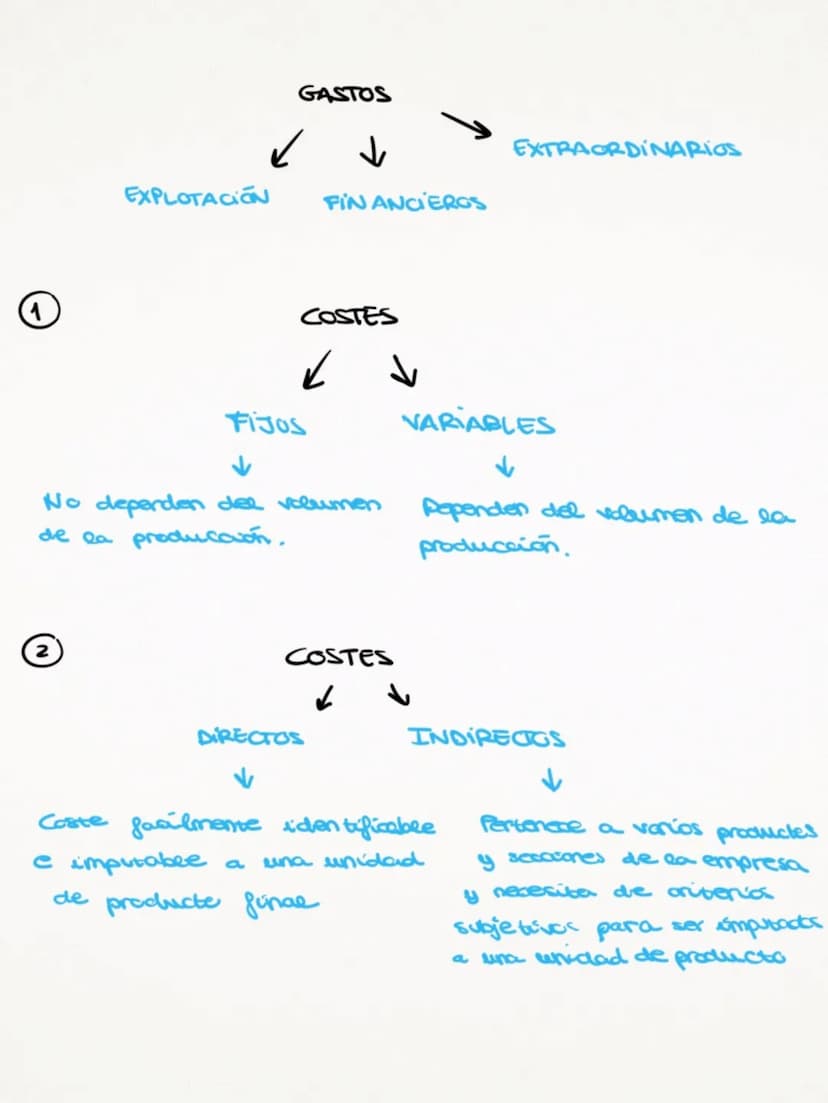 GASTOS
EXTRAORDINARIOS
EXPLOTACIÓN FINANCIEROS
1 COSTES
FIJOS VARIABLES
No dependen del volumen
de la producción.
Dependen del volumen de la
producción.
2 COSTES
DIRECTOS INDIRECTOS
Coste facilmente identificable
e imputable a una unidad
de producto final
Pertenece a varios productos
y secciones de la empresa
y necesita de criterios
subjetivos para ser imputados
a una unidad de producto